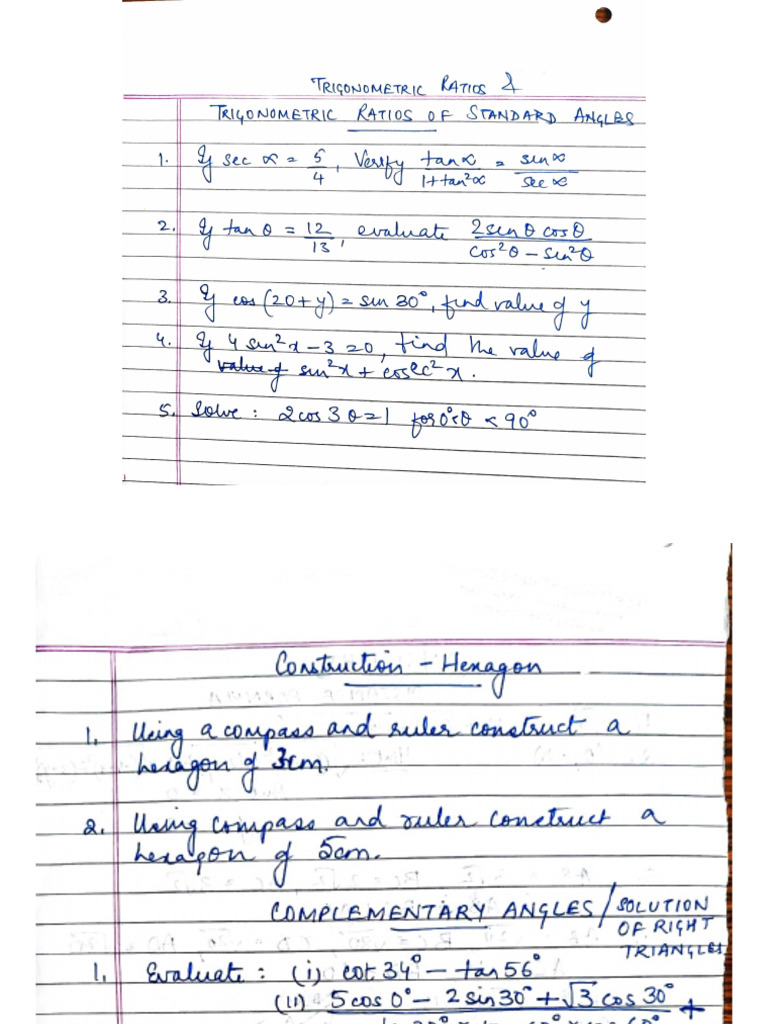 TRIGONOMETRIC RATIOS &
TRIGONOMETRIC RATIOS OF STANDARD ANGLES
1. If sec α = 5/4, Verify tanα/(1+tan²α) = sinα/sec α
2. If tan θ = 12/13, evaluate 2sin θ cos θ/(cos²θ – sin²θ)
3. If cos (20+y) = sin 30°, find value of y
4. If 4 sin²x – 3 = 0, find the value of
value of sin²x + cosec²x.
5. Solve : 2cos 3θ = 1 for 0°<θ < 90°
Construction – Hexagon
1. Using a compass and ruler construct a
hexagon of 3cm.
2. Using compass and ruler construct a
hexagon of 5cm.
COMPLEMENTARY ANGLES / SOLUTION
OF RIGHT
TRIANGLES
1. Evaluate : (i) cot 34° – tan 56°
(ii) 5 cos 0° – 2 sin 30° + √3 cos 30° +